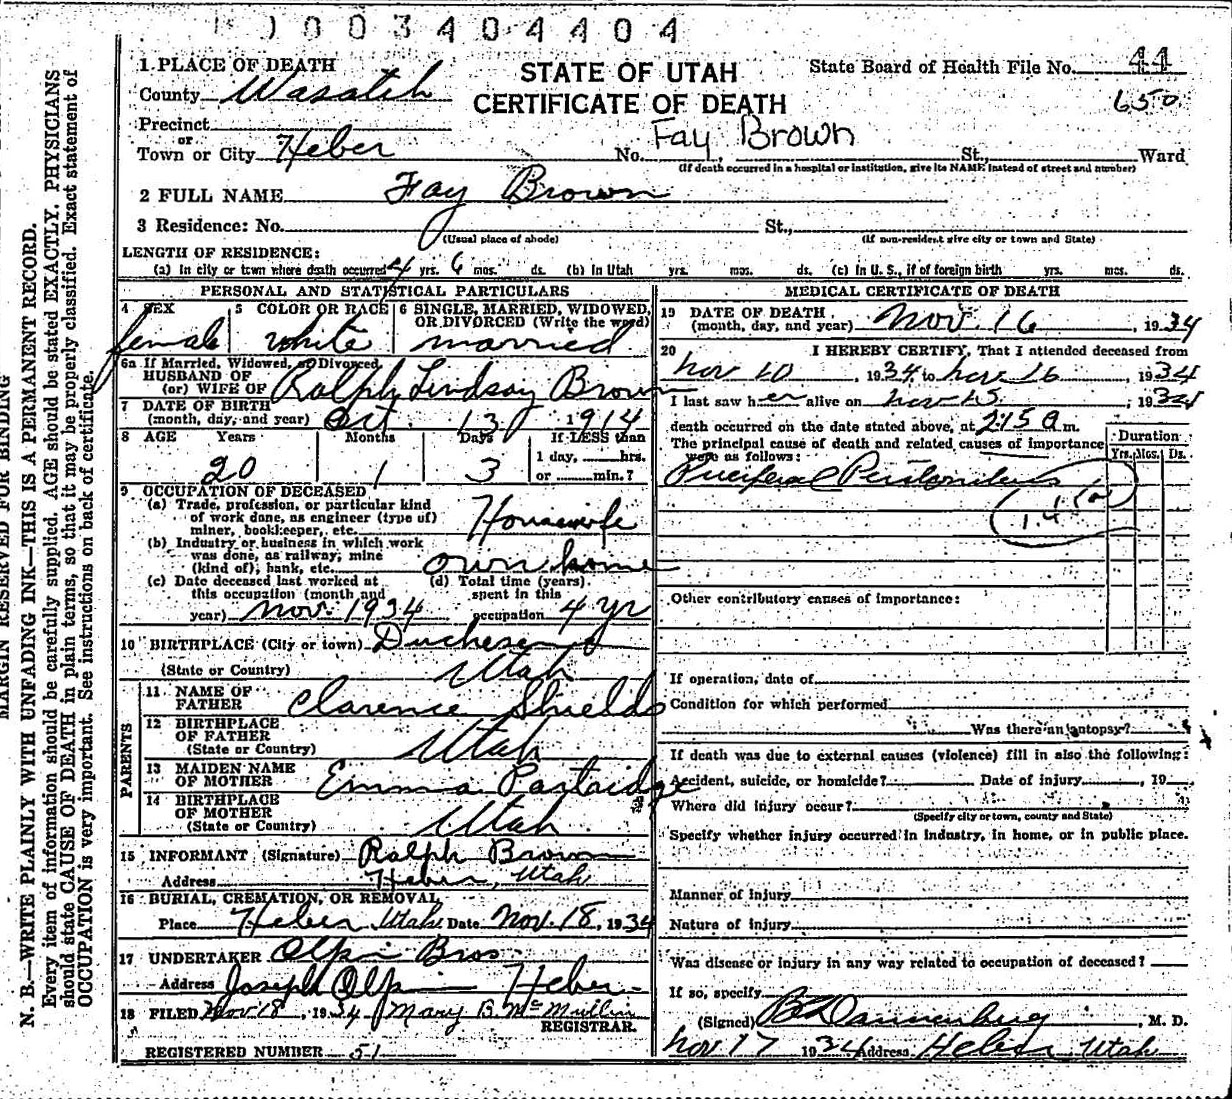 1003404404
1 PLACE OF DEATH
County Wasatch
Precinct
or
Town or City Heber
STATE OF UTAH
CERTIFICATE OF DEATH
State Board of Health File No. 44
650
Fay Brown
No. St., Ward
(If death occurred in a hospital or institution, give its NAME instead of street and number)
2 FULL NAME Fay Brown
3 Residence: No. St.,
(Usual place of abode) (If non-resident give city or town and State)
LENGTH OF RESIDENCE:
(a) In city or town where death occurred 4 yrs. 6 mos. ds. (b) In Utah yrs. mos. ds. (c) In U. S., if of foreign birth yrs. mos. ds.
PERSONAL AND STATISTICAL PARTICULARS
4 SEX 5 COLOR OR RACE 6 SINGLE, MARRIED, WIDOWED, OR DIVORCED (Write the word)
female white married
6a If Married, Widowed, or Divorced
HUSBAND OF
(or) WIFE OF Ralph Lindsay Brown
7 DATE OF BIRTH
(month, day, and year) Oct. 13 1914
8 AGE Years Months Days If LESS than
1 day, hrs.
20 1 3 or min.?
9 OCCUPATION OF DECEASED
(a) Trade, profession, or particular kind
of work done, as engineer (type of)
miner, bookkeeper, etc. Housewife
(b) Industry or business in which work
was done, as railway, mine
(kind of), bank, etc. own home
(c) Date deceased last worked at
this occupation (month and
year) Nov. 1934
(d) Total time (years)
spent in this
occupation 4 yr
10 BIRTHPLACE (City or town) Duchesne
(State or Country) Utah
PARENTS
11 NAME OF
FATHER Clarence Shields
12 BIRTHPLACE
OF FATHER
(State or Country) Utah
13 MAIDEN NAME
OF MOTHER Emma Partridge
14 BIRTHPLACE
OF MOTHER
(State or Country) Utah
15 INFORMANT (Signature) Ralph Brown
Address Heber, Utah
16 BURIAL, CREMATION, OR REMOVAL
Place Heber, Utah Date Nov. 18, 1934
17 UNDERTAKER Olpin Bros
Address Joseph Olpin Heber
18 FILED Nov 18, 1934 Mary B. McMullin
REGISTRAR.
REGISTERED NUMBER 51
MEDICAL CERTIFICATE OF DEATH
19 DATE OF DEATH
(month, day, and year) Nov. 16, 1934
20 I HEREBY CERTIFY, That I attended deceased from
Nov 10, 1934, to Nov 16, 1934
I last saw her alive on Nov 15, 1934
death occurred on the date stated above, at 2:15 a m.
The principal cause of death and related causes of importance
were as follows:
Duration
Yrs. Mos. Ds.
Puerperal Peritonitis
Other contributory causes of importance:
If operation, date of
Condition for which performed
Was there an autopsy?
If death was due to external causes (violence) fill in also the following:
Accident, suicide, or homicide? Date of injury, 19
Where did injury occur?
(Specify city or town, county and State)
Specify whether injury occurred in industry, in home, or in public place.
Manner of injury
Nature of injury
Was disease or injury in any way related to occupation of deceased?
If so, specify
(Signed) Dannenberg, M. D.
Nov 17 1934 Address Heber Utah
MARGIN RESERVED FOR BINDING
N. B.—WRITE PLAINLY WITH UNFADING INK—THIS IS A PERMANENT RECORD.
Every item of information should be carefully supplied. AGE should be stated EXACTLY, PHYSICIANS
should state CAUSE OF DEATH in plain terms, so that it may be properly classified. Exact statement of
OCCUPATION is very important. See instructions on back of certificate.